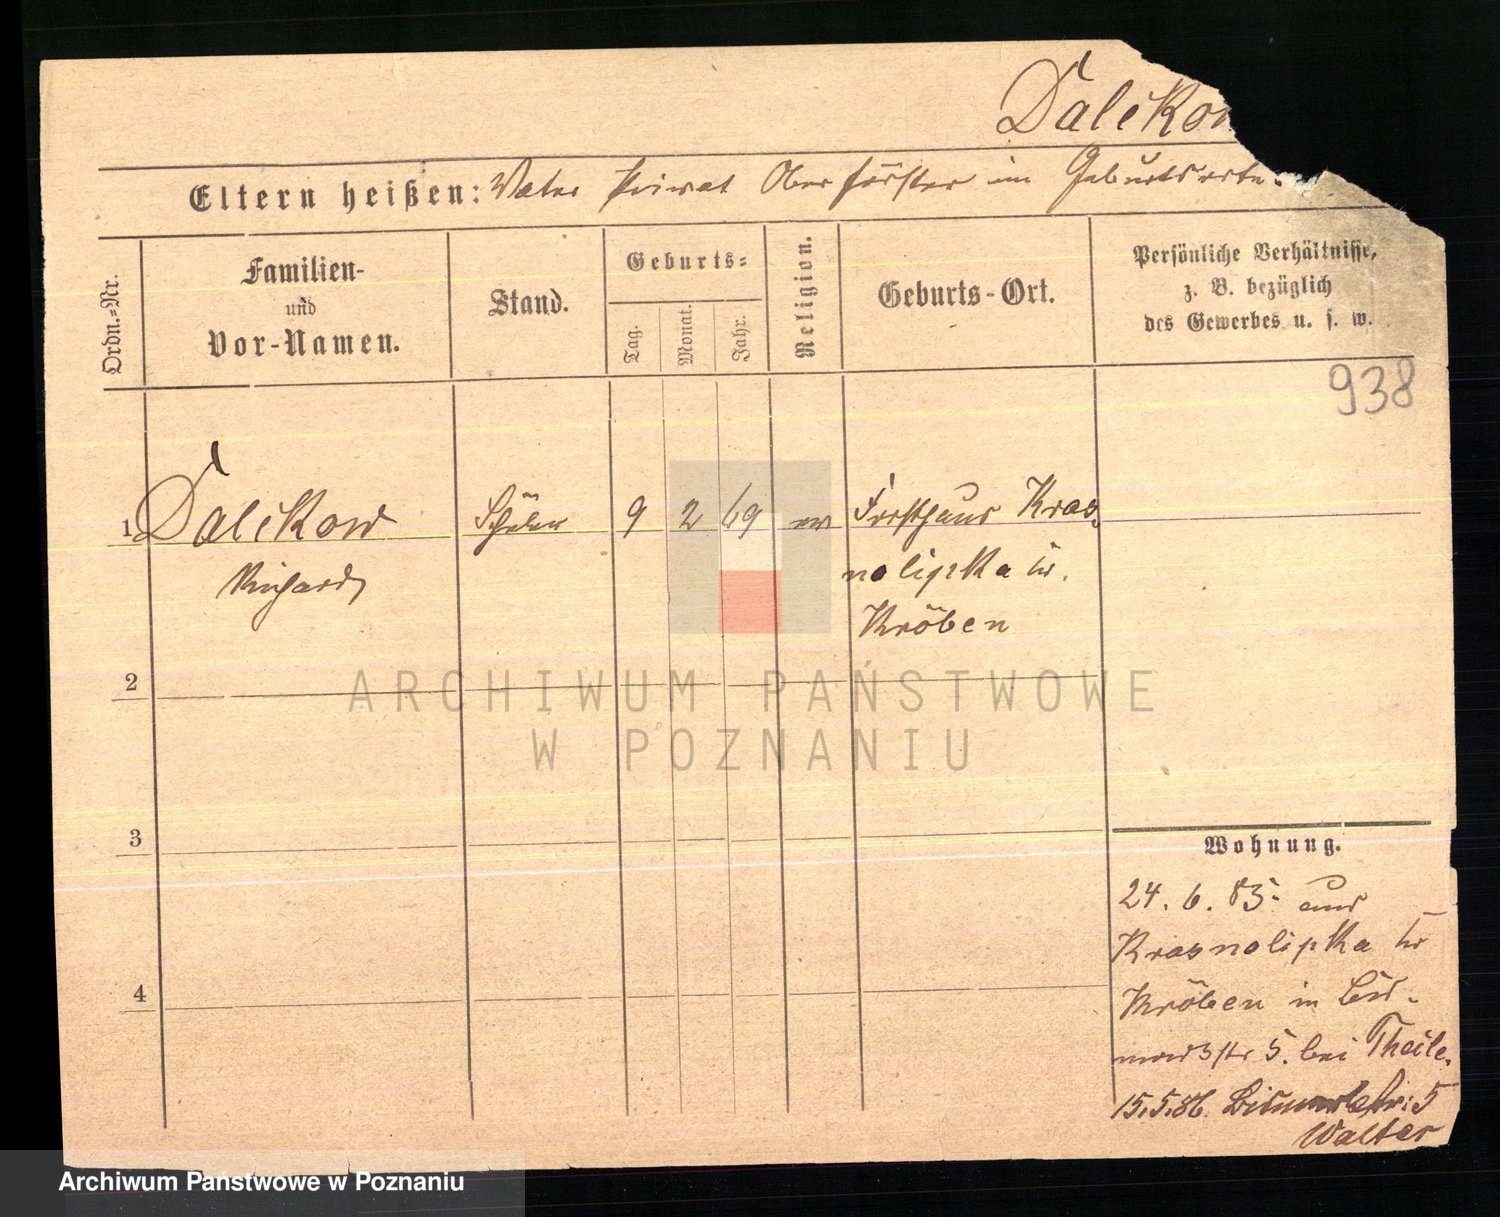 Dalékow
Eltern heißen: Vater Privat Oberförster im Geburtsorte.
Ordn.-Nr.
Familien-
und
Vor-Namen.
Stand.
Geburts-
Tag.
Monat.
Jahr.
Religion.
Geburts-Ort.
Persönliche Verhältnisse,
z. B. bezüglich
des Gewerbes u. s. w.
938
1 Dalékow Schüler 9 2 69 ev Forsthaus Kras-
Richard nolipka kr.
Kröben
2
ARCHIWUM PAŃSTWOWE
W POZNANIU
3
Wohnung.
24. 6. 85. aus
Krasnolipka kr
Kröben in Bis-
marckstr 5. bei Theile.
15.5.86. Bismarckstr: 5
Walter
4
Archiwum Państwowe w Poznaniu